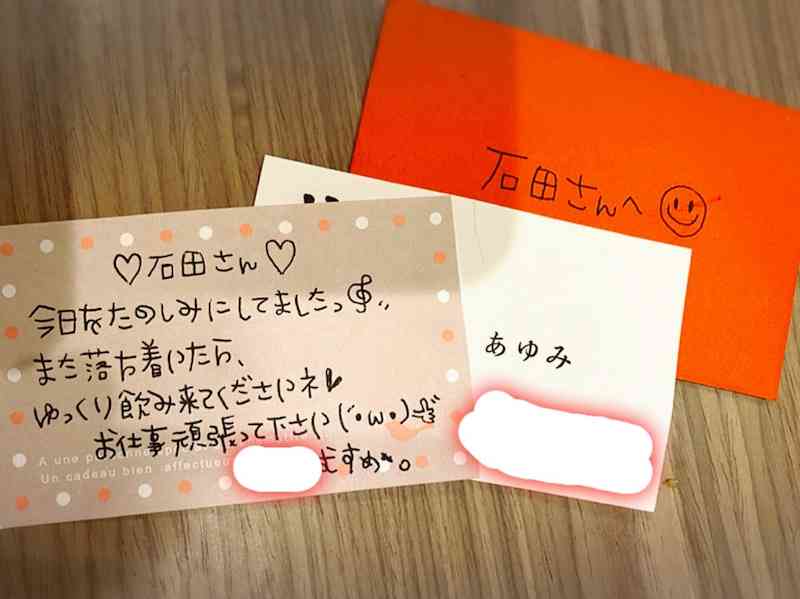 石田さんへ
あゆみ
♡石田さん♡
今日をたのしみにしてましたっ
また落ち着いたら、
ゆっくり飲み来てくださいネ
お仕事頑張って下さい(´•ω•)
A une
Un cadeau bien affectueu
むすめ